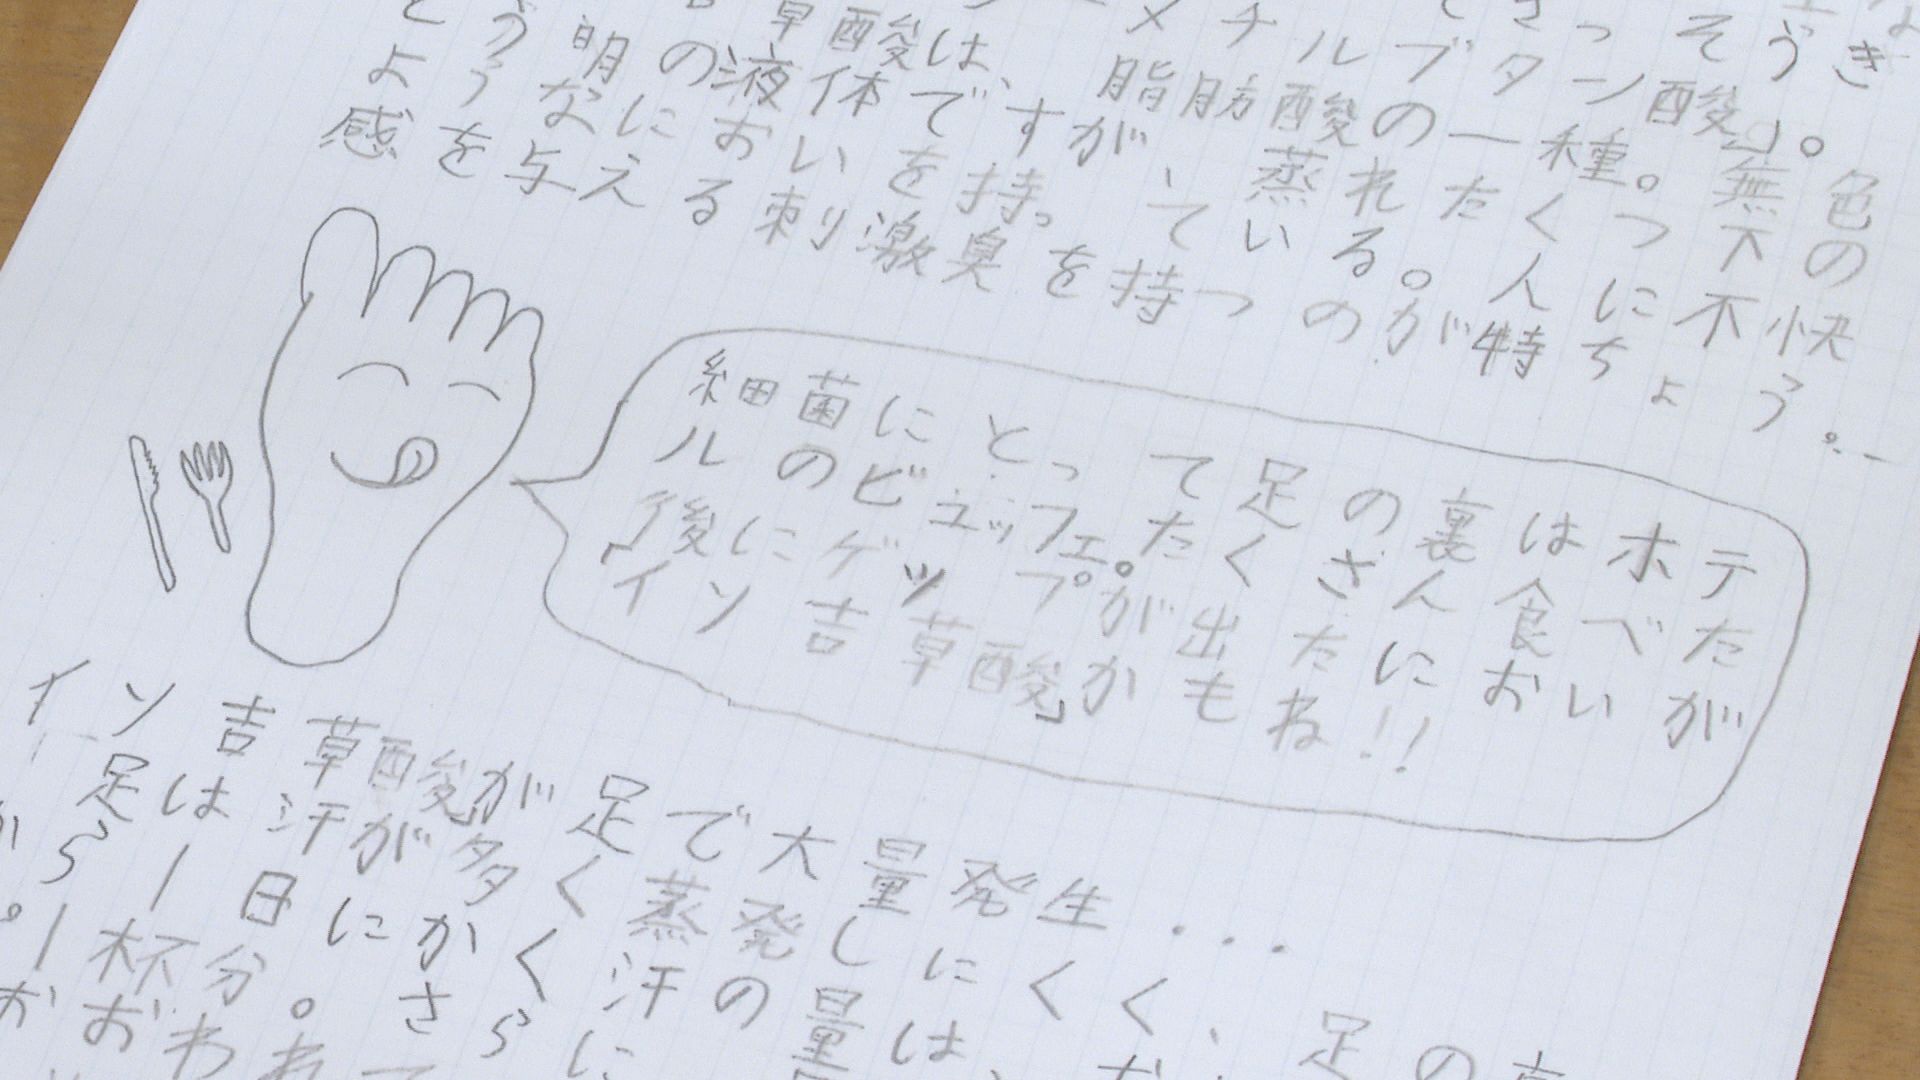 さっそうき
メチルブタン酸」。
草酸は、脂肪酸の一種。無色
とう明の液体ですが、蒸れたくつ下の
ようなにおいを持っている。人に不快
感を与える刺激臭を持つのが特ちょう。
細菌にとって足の裏はホテ
ルのビュッフェ。たくさん食べた
後にゲップが出たにおいが
「イソ吉草酸」かもね!!
イソ吉草酸が足で大量発生...
足は汗が多く蒸発しにくく、足の
から1日にかく汗の量は、
。1杯分。さらに
おわれて